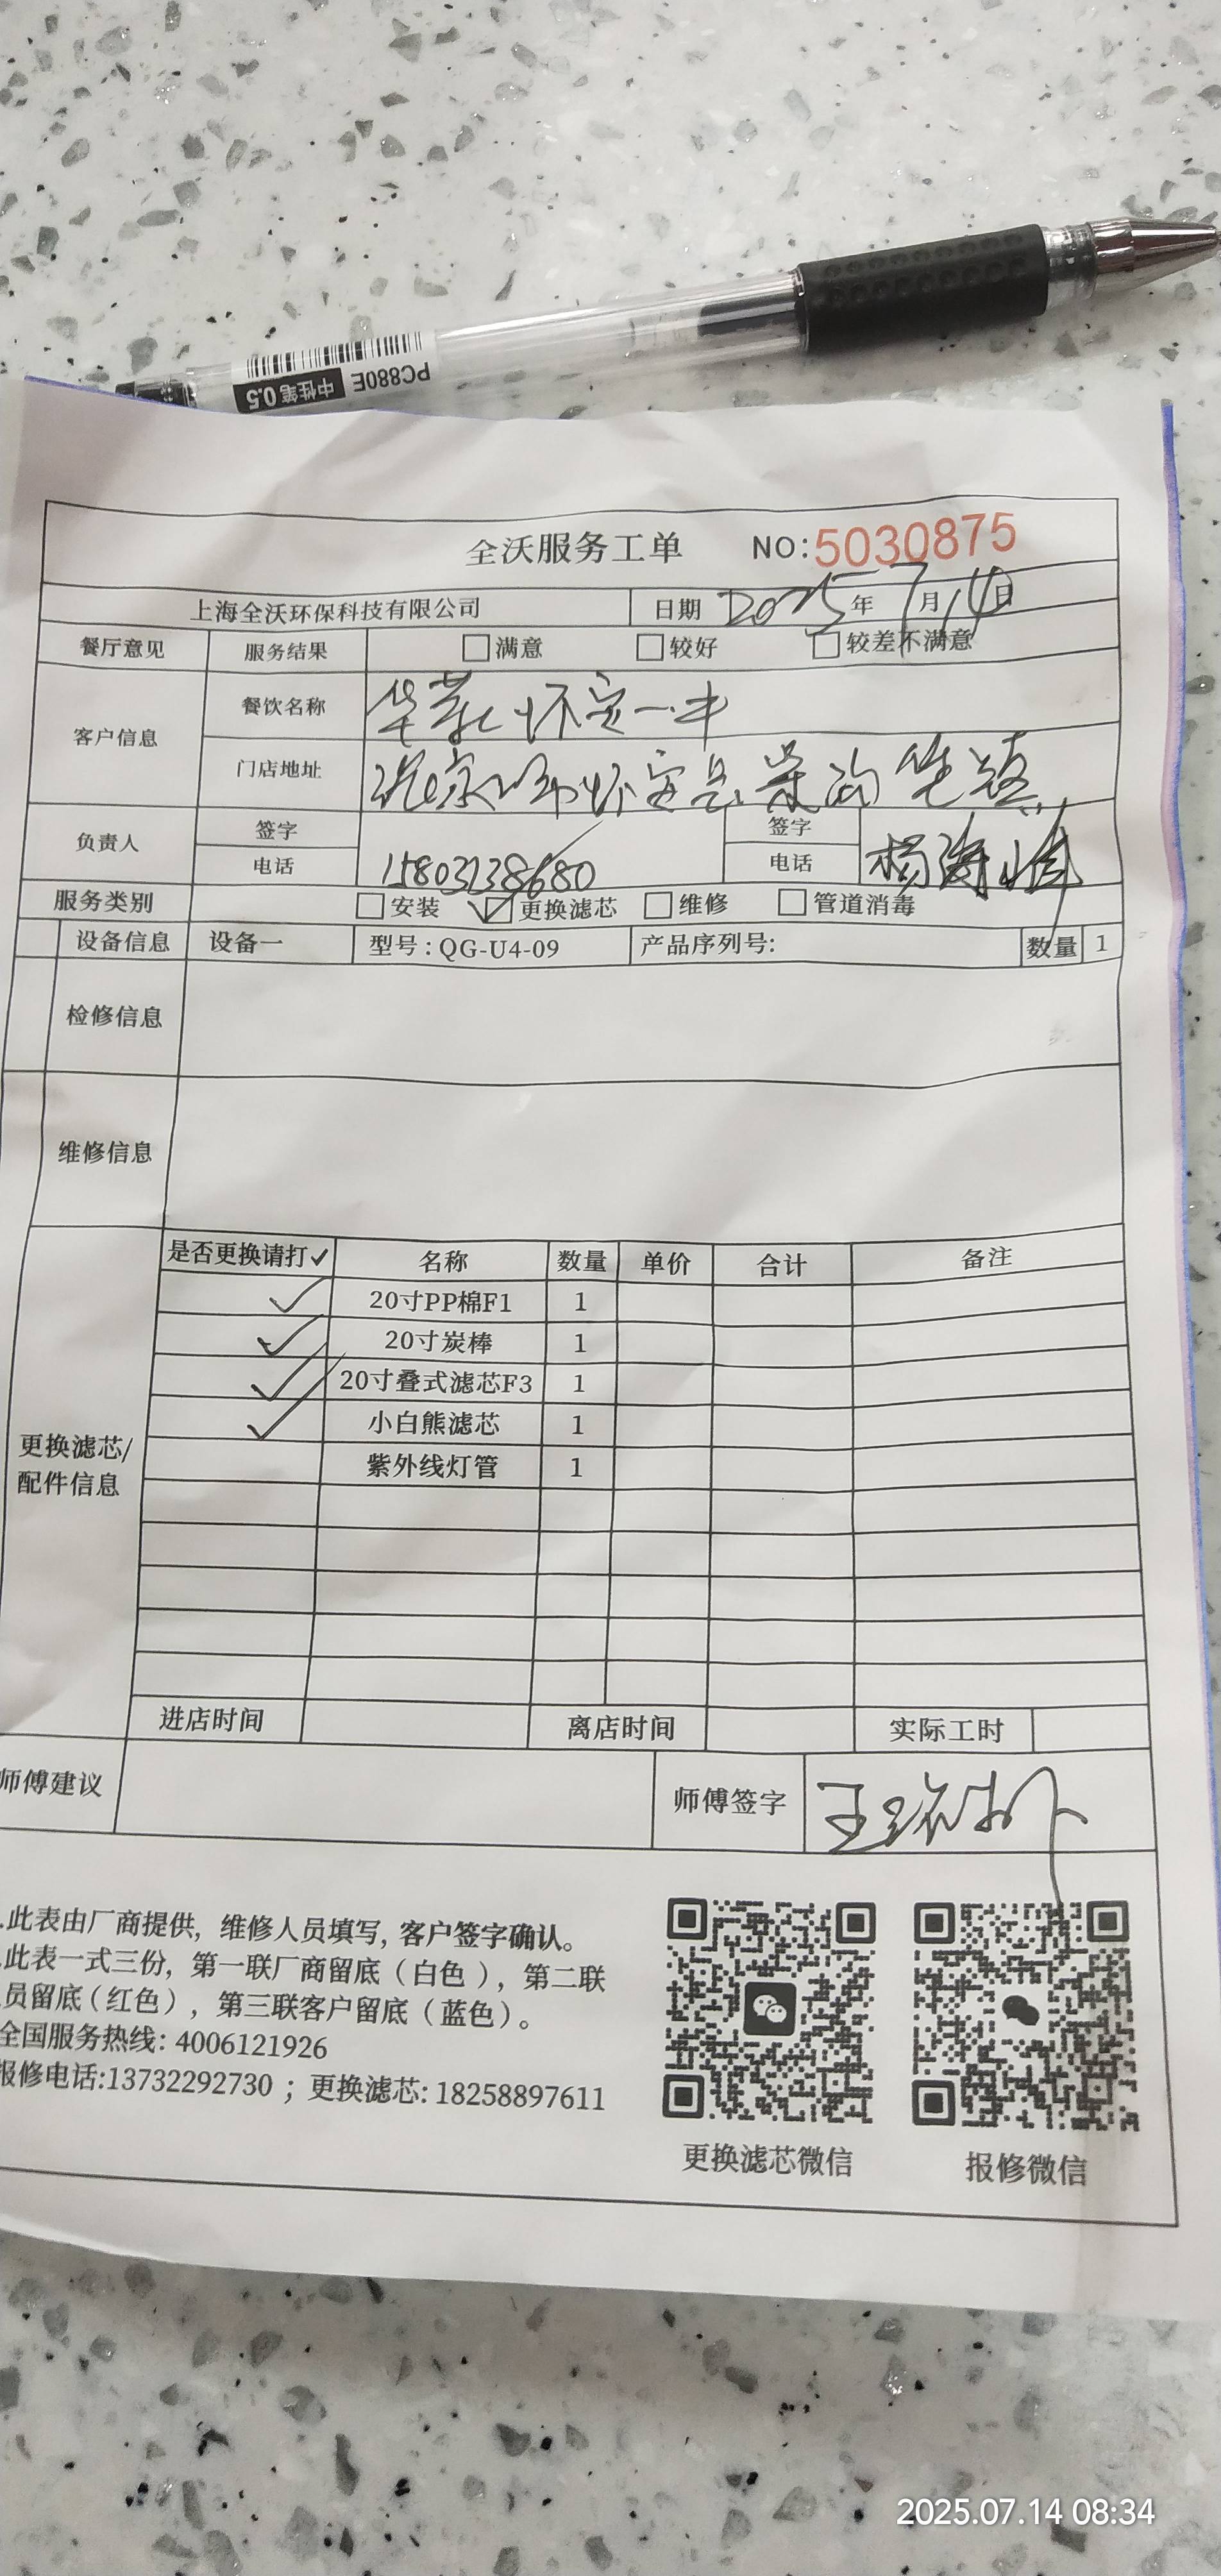 PC880E
中性笔 0.5
全沃服务工单 NO:5030875
上海全沃环保科技有限公司 日期 2025年7月14日
餐厅意见 服务结果 □满意 □较好 □较差不满意
客户信息 餐饮名称 华莱士怀安一中
门店地址 张家口市怀安县柴沟堡镇
负责人 签字 签字
电话 15803238680 电话 杨海峰
服务类别 □安装 ☑更换滤芯 □维修 □管道消毒
设备信息 设备一 型号:QG-U4-09 产品序列号: 数量 1
检修信息
维修信息
是否更换请打✓ 名称 数量 单价 合计 备注
✓ 20寸PP棉F1 1
✓ 20寸炭棒 1
✓ 20寸叠式滤芯F3 1
✓ 小白熊滤芯 1
紫外线灯管 1
更换滤芯/
配件信息
进店时间 离店时间 实际工时
师傅建议 师傅签字 王
.此表由厂商提供, 维修人员填写, 客户签字确认。
.此表一式三份, 第一联厂商留底(白色), 第二联
员留底(红色), 第三联客户留底(蓝色)。
全国服务热线: 4006121926
报修电话:13732292730 ; 更换滤芯: 18258897611
更换滤芯微信 报修微信
2025.07.14 08:34